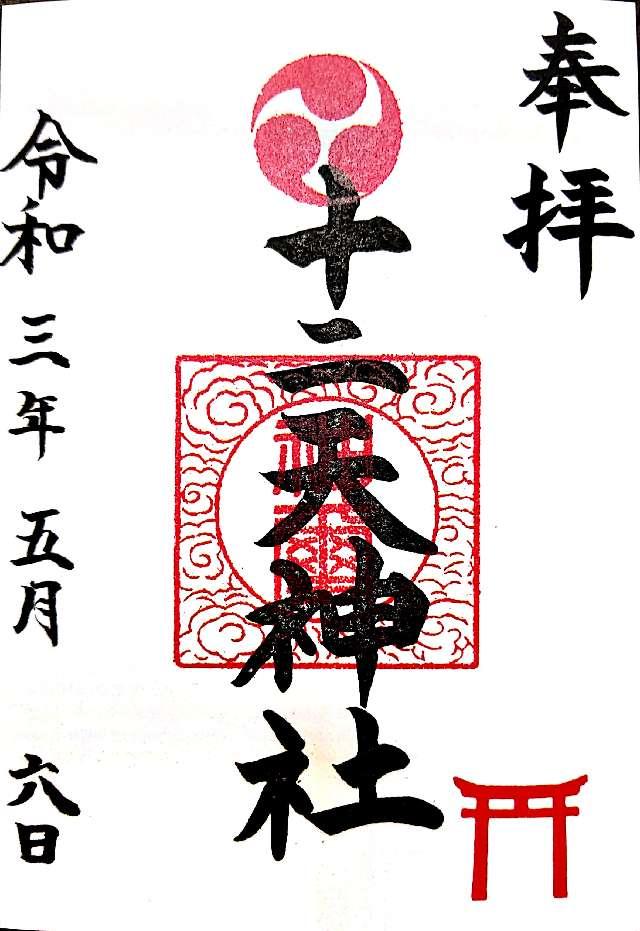 奉拝
十二天神社
神璽
令和三年五月六日